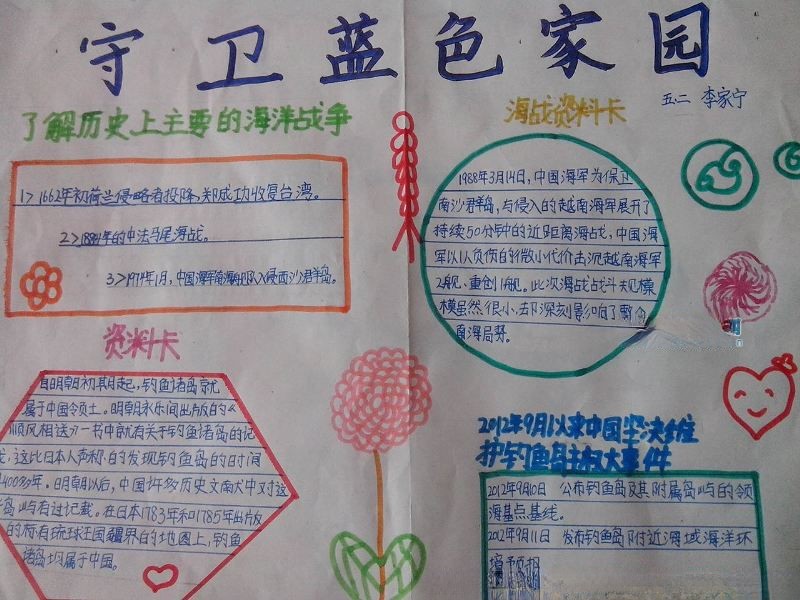 守卫蓝色家园
五.二 李家宁
了解历史上主要的海洋战争
1> 1662年初荷兰侵略者投降,郑成功收复台湾。
2> 1884年的中法马尾海战。
3> 1974年1月,中国海军南海舰队入侵西沙群岛。
资料卡
自明朝初期起,钓鱼诸岛就
属于中国领土。明朝永乐间出版的《
顺风相送》一书中就有关于钓鱼诸岛的记
这比日本人声称的发现钓鱼岛的时间
400多年。明朝以后,中国许多历史文南大中对这
岛屿有过记载。在日本1783年和1785年出版
的标有琉球王国疆界的地图上,钓鱼
诸岛均属于中国。
海战资料卡
1988年3月14日,中国海军为保卫
南沙群岛,与侵入的越南海军展开了
持续50分钟的近距离海战,中国海
军以1人负伤的微小代价击沉越南海军
2舰、重创1舰。此次海战战斗规模
模虽然很小,却深刻影响了
南海局势。
2012年9月以来中国坚决维
护钓鱼岛主权大事件
2012年9月10日 公布钓鱼岛及其附属岛屿的领
海基点基线。
2012年9月11日 发布钓鱼岛附近海域海洋环
境预报